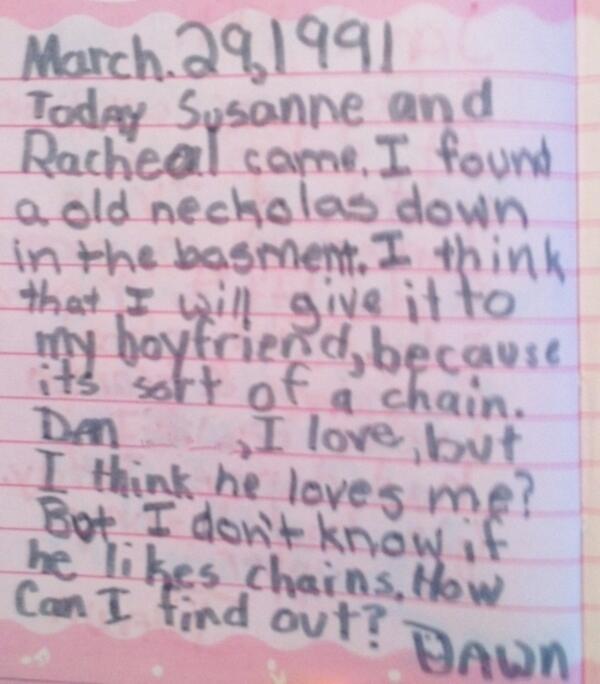 March.29,1991
Today Susanne and
Racheal came. I found
a old necholas down
in the basment. I think
that I will give it to
my boyfriend, because
its sort of a chain.
Dan ,I love, but
I think he loves me?
But I don't know if
he likes chains. How
Can I find out?
DAWN